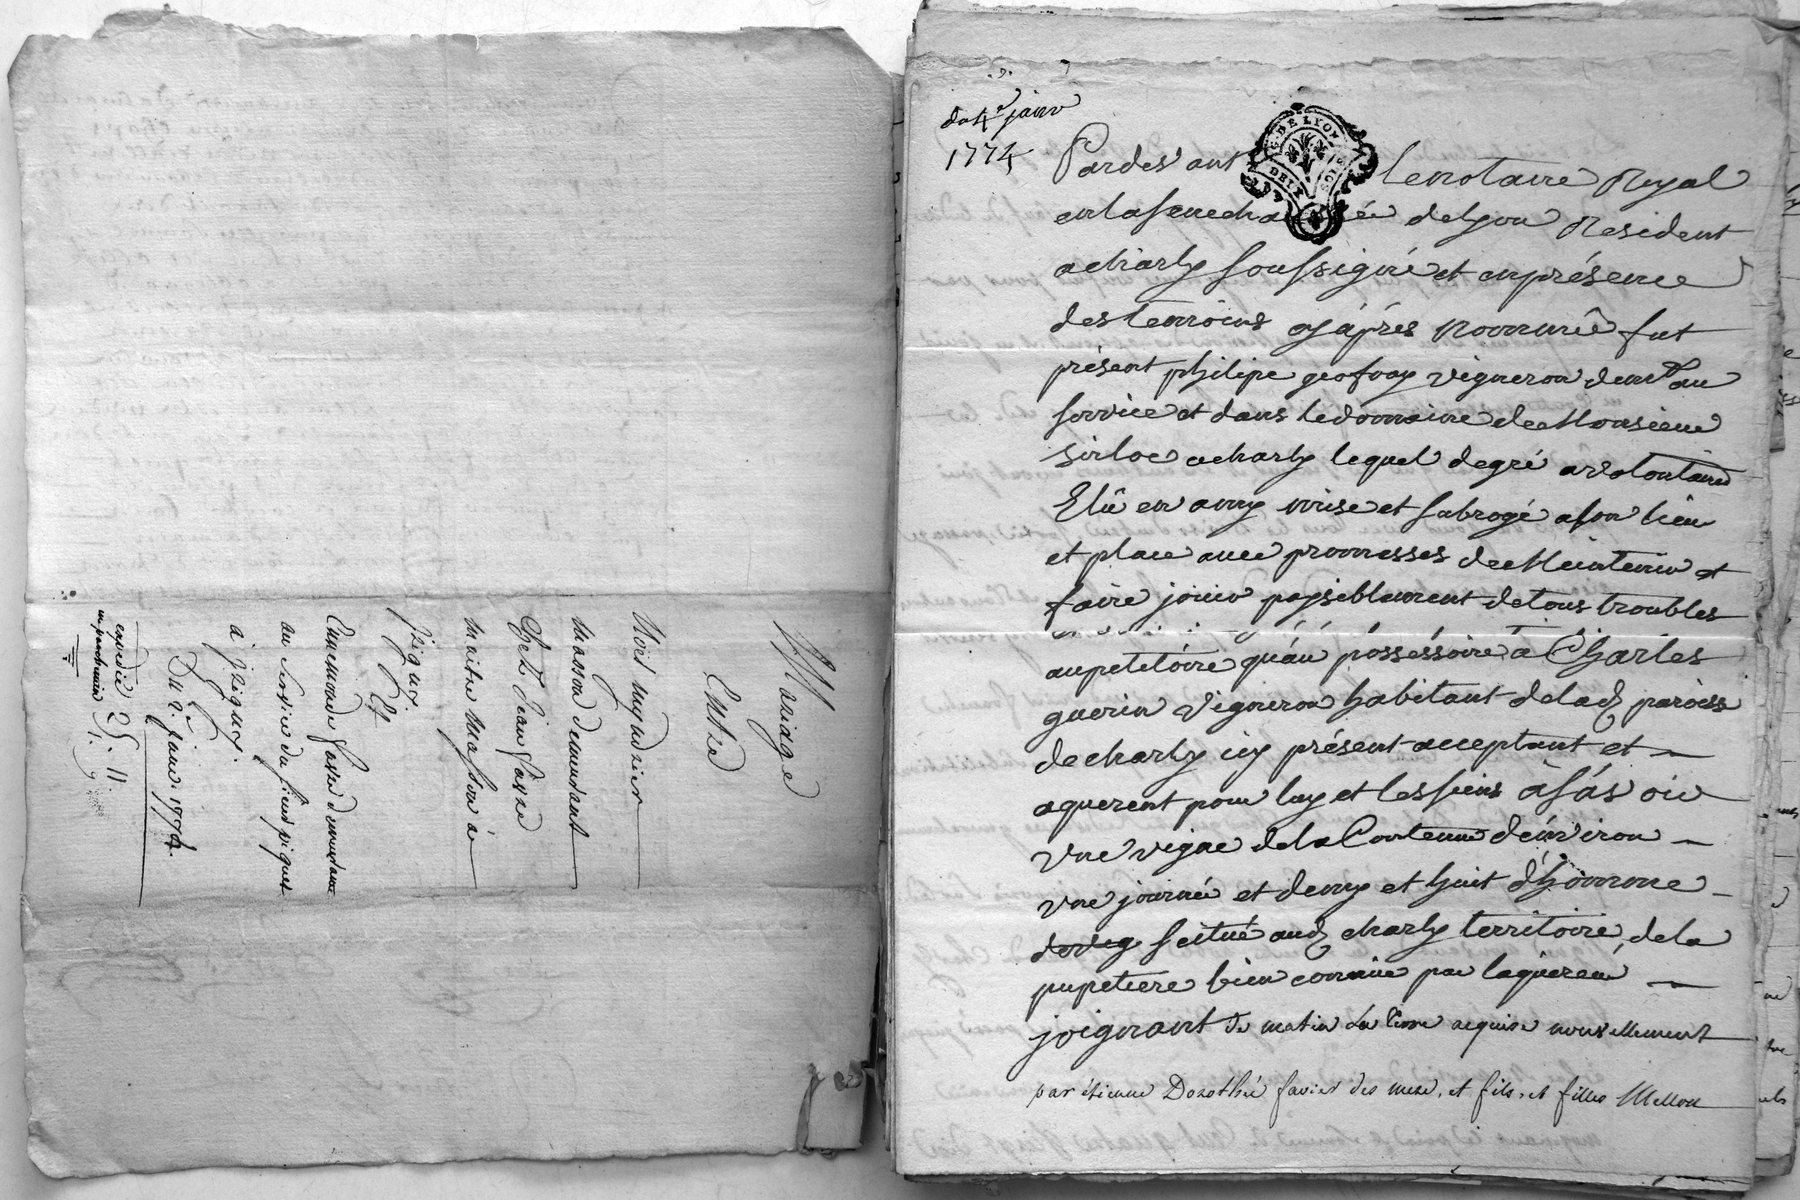 Mariage
Entre
Noël
Masson demeurant
Et Jean Favre
maitre Masson à
jrigny.
Et
Ennemonde Favre demeurante
au service du sieur piquet
à jrigny.
Du 2e. janv. 1774.
expedié
du 4e janv
1774
G. DE LYON
Pardevant le notaire Royal
en la senechaussée de Lyon Resident
a charly soussigné et en présence
des temoins cy après nommé fut
présent philipe geofray vigneron demt au
service et dans le domaine de Monsieur
Sirloc a charly lequel de gré a volontaire
Elû en amy mise et subrogé a son lieu
et place avec promesses de Meintenir et
faire jouir paysiblement de tous troubles
au petitoire qu'au possessoire à Charles
guerin Vigneron habitant de lad paroiss
de charly icy présent acceptant et
aquerent pour luy et les siens à sás oir
une vigne de la Contenue d'environ
une journée et demy et huit d'homme
scitué aud charly territoire de la
pupetiere bien connue par l'aquereur
joignant de matin la terre acquise nouvellement
par étienne Dorothée favier des mere, et fils, et filles Mellou